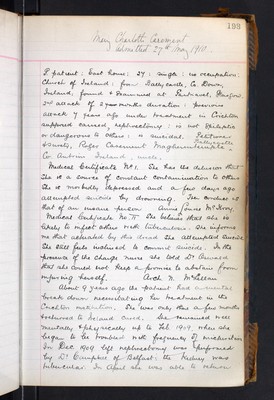 193
Mary Charlotte Casement
admitted 27th May 1910
P. patient: East House: 27: single: no occupation:
Church of Ireland: from Ballycastle, Co Down,
Ireland; found & examined at
2nd attack of 2 years months duration: previous
attack 7 years ago under treatment in Crichton
supposed cause, nephrectomy: is not Epileptic
or dangerous to others: is suicidal. Petitioner
Roger Casement Magherintemple Ballycastle
Co Antrim Ireland, uncle.
Medical Certificate No. 1. She has the delusion that
she is a source of constant contamination to others
She is morbidly depressed and a few days ago
attempted suicide by drowning. Her brother is
that of an insane person. Anne
Medical Certificate No II She believes that she is
likely to infect others with tuberculosis. She informs
me that actuated by this dread she attempted suicide
She still feels inclined to commit suicide. In the
presence of the charge nurse she told Dr
that she could not keep a promise to abstain from
injuring herself. Arch N. McLellan
About 9 years ago the patient had a mental
break down necessitating her treatment in the
Crichton Institution. She was only there a few months
& returned to Ireland cured. She remained well
mentally & physically up to Feb 1909, when she
began to be troubled with frequency of micturition
In Dec 1909 left nephrectomy was performed
by Dr Campbell of Belfast: the kidney was
tubercular. In April she was able to return